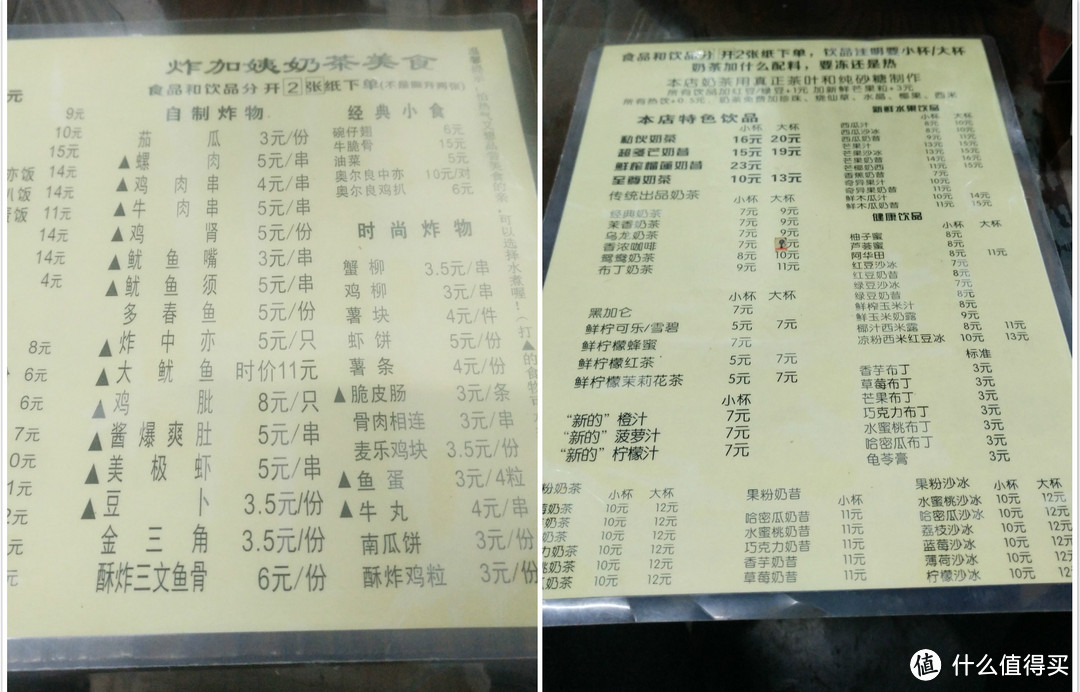 炸加姨奶茶美食
食品和饮品分开2张纸下单(不是撕开两张)
自制炸物
茄瓜 3元/份
▲螺肉 5元/串
▲鸡肉串 4元/串
▲牛肉串 5元/串
▲鸡肾 5元/串
▲鱿鱼嘴 3元/串
▲鱿鱼须 5元/串
多春鱼 5元/份
▲炸中亦 5元/只
▲大鱿鱼 时价11元
▲鸡肶 8元/只
▲酱爆爽肚 5元/串
▲美极虾 5元/串
▲豆卜 3.5元/份
金三角 3.5元/份
酥炸三文鱼骨 6元/份
经典小食
碗仔翅 6元
牛脆骨 15元
油菜 5元
奥尔良中亦 10元/对
奥尔良鸡扒 6元
时尚炸物
蟹柳 3.5元/串
鸡柳 3元/串
薯块 4元/件
虾饼 5元/份
薯条 4元/份
▲脆皮肠 3元/条
骨肉相连 3元/串
麦乐鸡块 3.5元/份
▲鱼蛋 3元/4粒
▲牛丸 4元/串
南瓜饼 3元/份
酥炸鸡粒 3元/份
元
9元
10元
15元
亦饭 14元
扒饭 14元
饭 11元
14元
14元
4元
8元
6元
6元
7元
0元
1元
2元
元
元
食品和饮品分开2张纸下单,饮品注明要小杯/大杯
奶茶加什么配料,要冻还是热
本店奶茶用真正茶叶和炖砂糖制作
所有饮品加红豆/绿豆+1元 加新鲜芒果粒+3元
所有热饮+0.5元,奶茶免费加珍珠、烧仙草、水晶、椰果、西米
本店特色饮品
小杯 大杯
秘饮奶茶 16元 20元
超多芒奶昔 15元 19元
鲜榨榴莲奶昔 23元
至尊奶茶 10元 13元
传统出品奶茶 小杯 大杯
经典奶茶 7元 9元
茉香奶茶 7元 9元
乌龙奶茶 7元 9元
香浓咖啡 7元 9元
鸳鸯奶茶 8元 10元
布丁奶茶 9元 11元
小杯 大杯
黑加仑 7元
鲜柠可乐/雪碧 5元 7元
鲜柠檬蜂蜜 7元
鲜柠檬红茶 5元 7元
鲜柠檬茉莉花茶 5元 7元
小杯
“新的”橙汁 7元
“新的”菠萝汁 7元
“新的”柠檬汁 7元
新鲜水果饮品
小杯 大杯
西瓜汁 8元 10元
西瓜沙冰 8元 10元
西瓜奶昔 9元 11元
芒果汁 13元 15元
芒果沙冰 13元 15元
芒果奶昔 14元 16元
芒果奶西 11元 15元
香蕉奶昔 7元
奇异果汁 10元
奇异果奶昔 11元
鲜木瓜汁 10元 14元
鲜木瓜奶昔 11元 15元
健康饮品
小杯 大杯
柚子蜜 8元
芦荟蜜 8元
阿华田 8元 11元
红豆沙冰 7元
红豆奶昔 8元
绿豆沙冰 7元
绿豆奶昔 8元
鲜榨玉米汁 8元
鲜玉米奶露 9元
椰汁西米露 8元 11元
凉粉西米红豆冰 10元 13元
标准
香芋布丁 3元
草莓布丁 3元
芒果布丁 3元
巧克力布丁 3元
水蜜桃布丁 3元
哈密瓜布丁 3元
龟苓膏 3元
粉奶茶 小杯 大杯
奶茶 10元 12元
奶茶 10元 12元
奶茶 10元 12元
力奶茶 10元 12元
桃奶茶 10元 12元
奶茶 10元 12元
果粉奶昔 小杯
哈密瓜奶昔 11元
水蜜桃奶昔 11元
巧克力奶昔 11元
香芋奶昔 11元
草莓奶昔 11元
果粉沙冰 小杯 大杯
水蜜桃沙冰 10元 12元
哈密瓜沙冰 10元 12元
荔枝沙冰 10元 12元
蓝莓沙冰 10元 12元
薄荷沙冰 10元 12元
柠檬沙冰 10元 12元
值 什么值得买